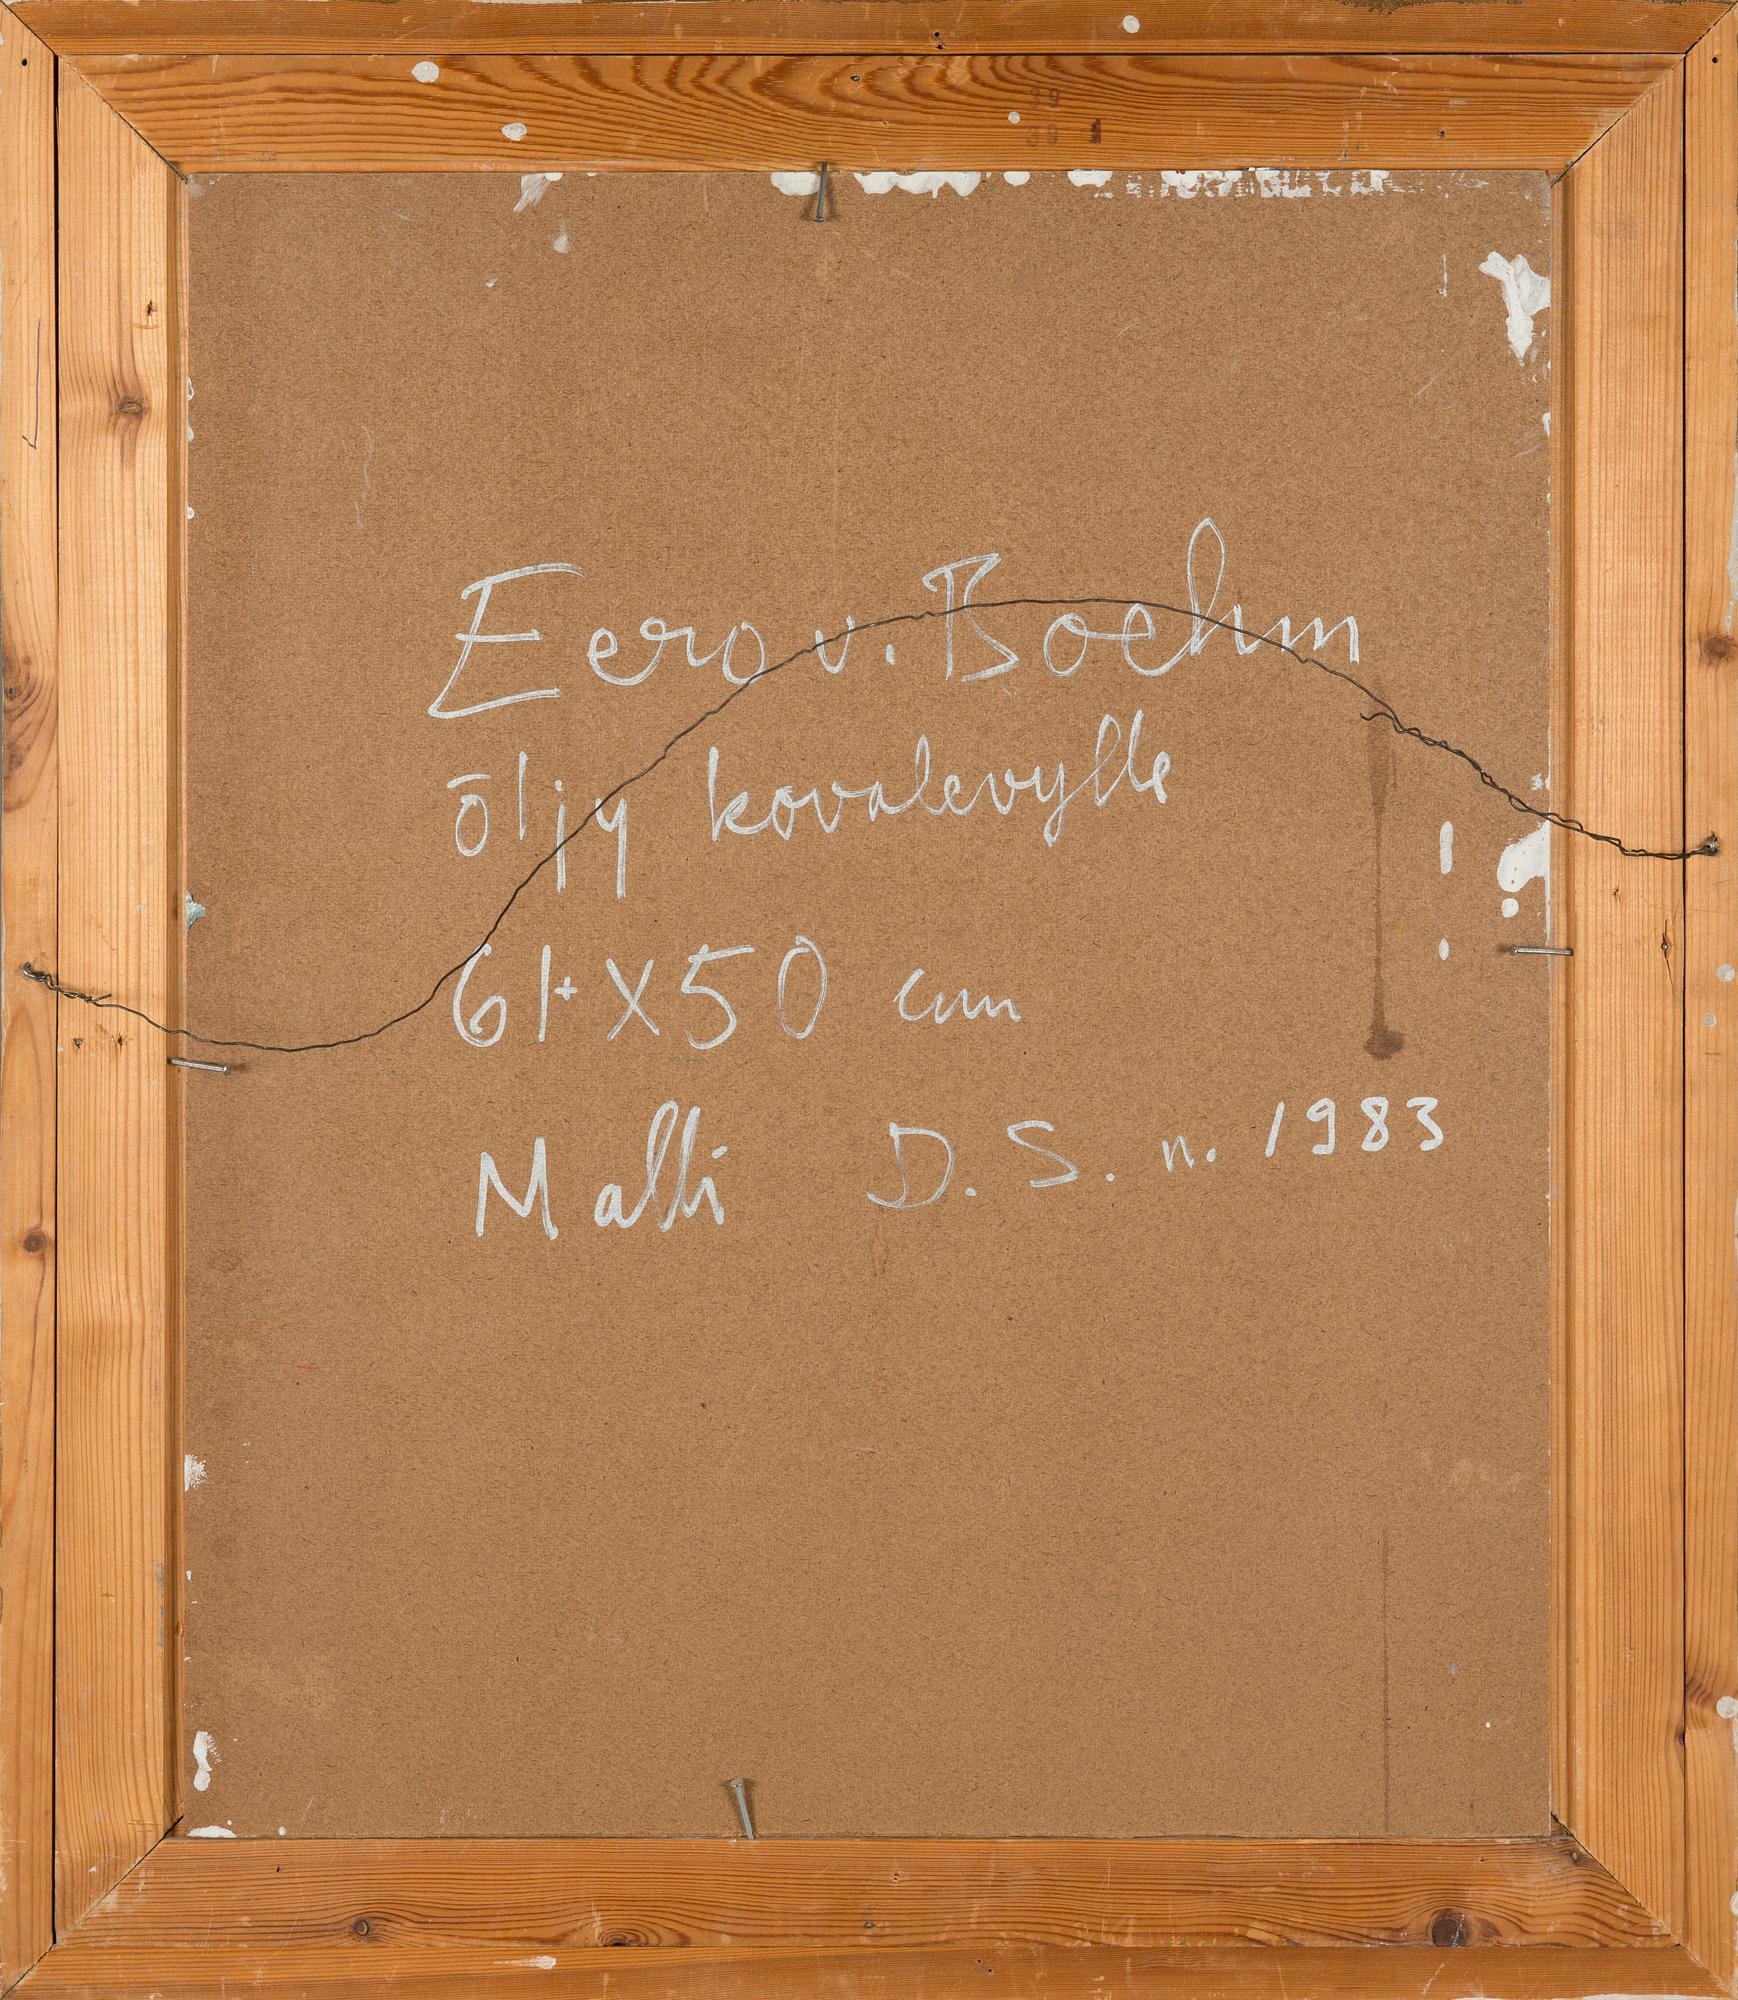 39
39 1
Eero v. Boehm
öljy kovalevylle
61+ X 50 cm
Malli D. S. n. 1983